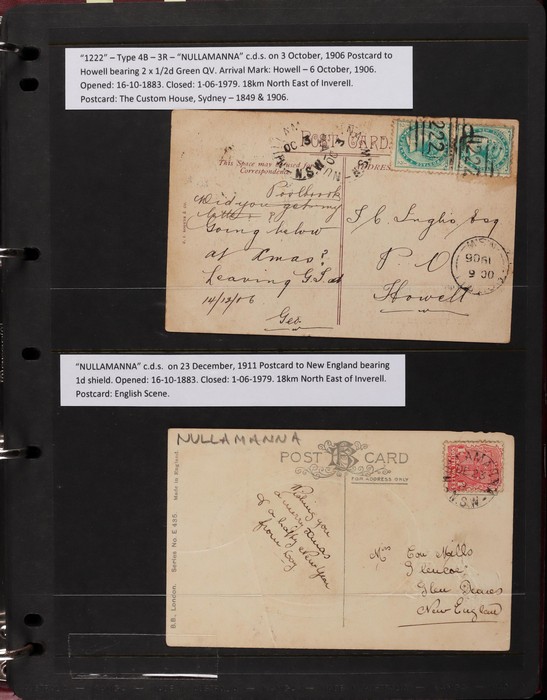 "1222" – Type 4B – 3R – "NULLAMANNA" c.d.s. on 3 October, 1906 Postcard to
Howell bearing 2 x 1/2d Green QV. Arrival Mark: Howell – 6 October, 1906.
Opened: 16-10-1883. Closed: 1-06-1979. 18km North East of Inverell.
Postcard: The Custom House, Sydney – 1849 & 1906.
POST CARD
This Space may be used for
Correspondence
ADDRESS
OC 3
N.S.W
222
Did you get my
letter
Going below
at Xmas?
Leaving G.I. at
14/13/06
Geo
J C Inglis Esq
P O
Howell
N.S.W
OC 6
1906
"NULLAMANNA" c.d.s. on 23 December, 1911 Postcard to New England bearing
1d shield. Opened: 16-10-1883. Closed: 1-06-1979. 18km North East of Inverell.
Postcard: English Scene.
NULLAMANNA
POST CARD
FOR ADDRESS ONLY
B.B. London. Series No. E 435. Made in England.
DE 23
N.S.W
Wishing you
a merry Xmas
& a happy New Year
from
Miss
Glencoe
Glen Innes
New England